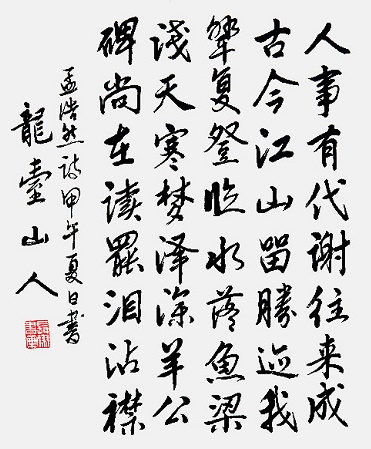 人事有代谢往来成
古今江山留勝迹我
輩复登临水落魚梁
浅天寒梦泽深羊公
碑尚在读罷泪沾襟
孟浩然诗甲午夏日書
龍山人